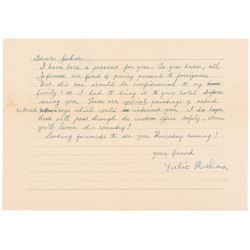 Dear John
I have here a present for you. As you know, all
Japanese are fond of giving presents to foreigners.
But this one should be confidential to my
family! So I had to bring it to your hotel before
seeing you. These are special paintings of naked
boys which could be interested you. I do hope
these will pass through the custom office safely, when
you'll leave this country!
Looking forwards to see you Thursday evening!
your friend
Yukio Mishima